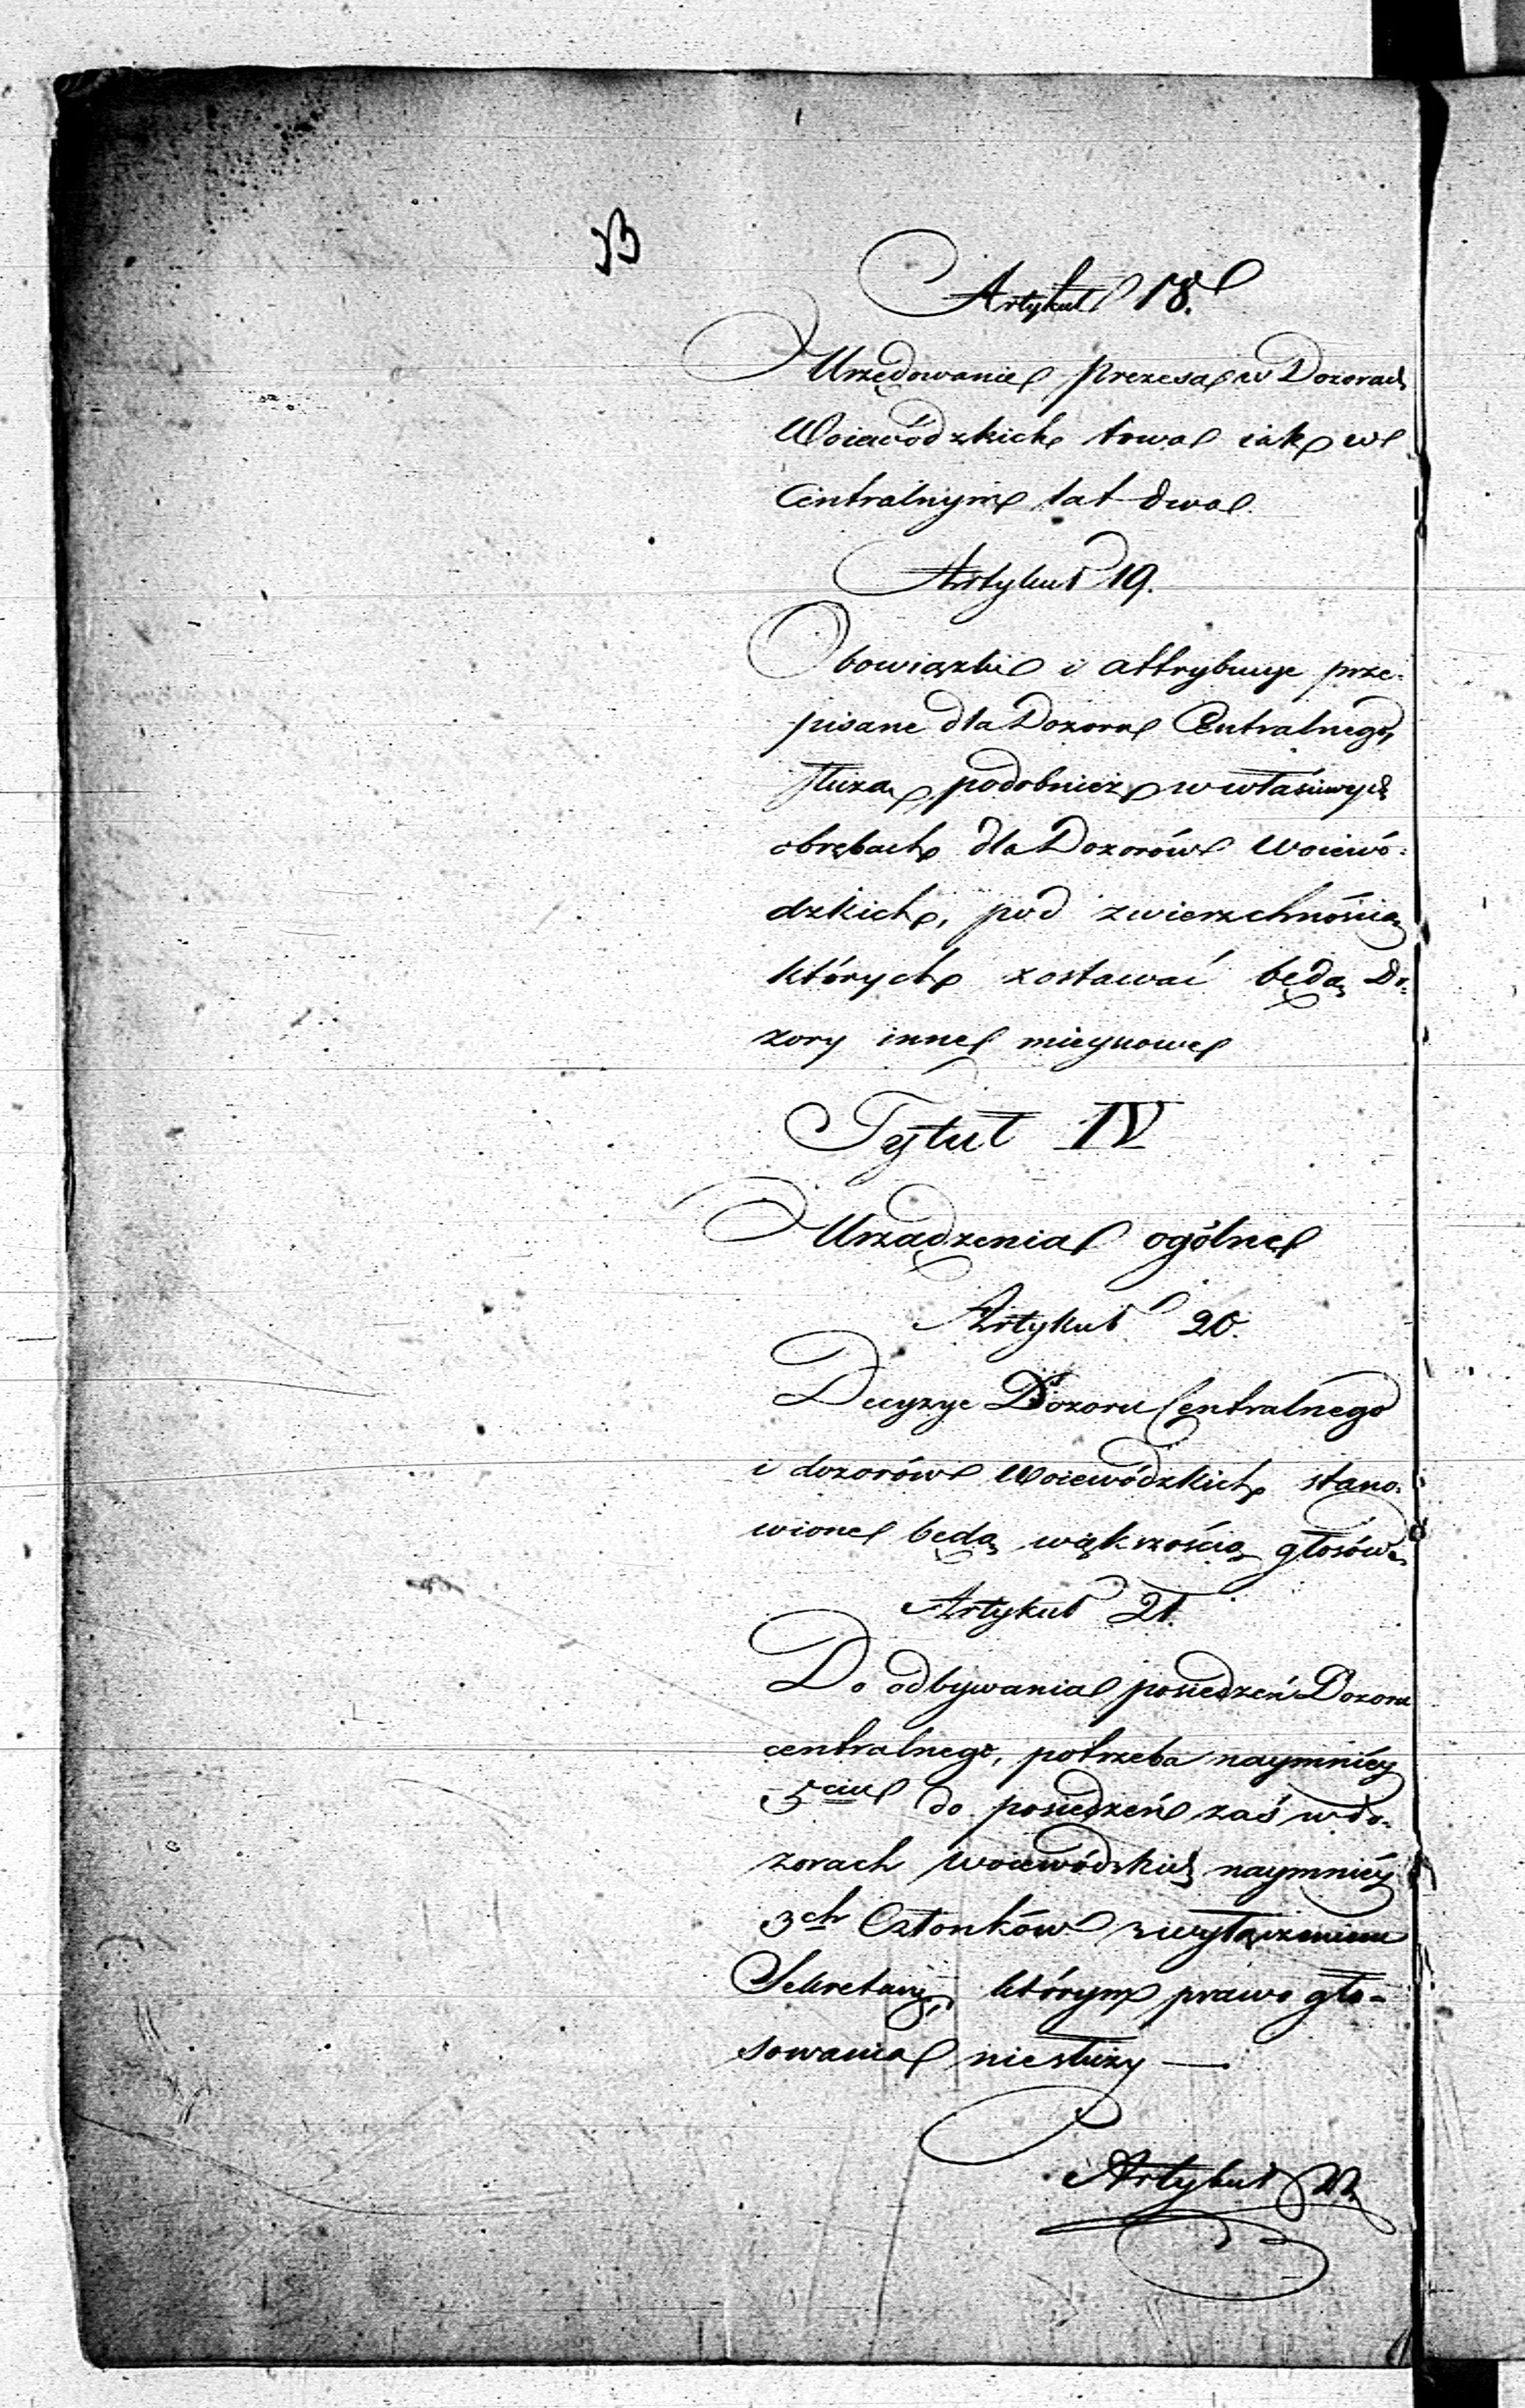 Artykuł 18.
Urzędowanie Prezesa w Dozorach
Woiewódzkich trwa iak w
Centralnym lat dwa
Artykuł 19.
Obowiązki i attrybucye prze-
pisane dla Dozoru Centralnego,
służą podobnież w właściwych
obrębach dla Dozorów Woiewó-
dzkich, pod zwierzchnością
których zostawać będą Do-
zory inne mieyscowe
Tytuł IV
Urządzenia ogólne
Artykuł 20.
Decyzye Dozoru Centralnego
i dozorów Woiewódzkich stano-
wione będą większością głosów
Artykuł 21.
Do odbywania posiedzeń Dozoru
centralnego, potrzeba naymniéy
5ciu do posiedzeń zaś w do-
zorach woiewódzkich naymniéy
3ch Członków z wyłączeniem
Sekretarzy, którym prawo gło-
sowania niesłuży —
Artykuł 22.